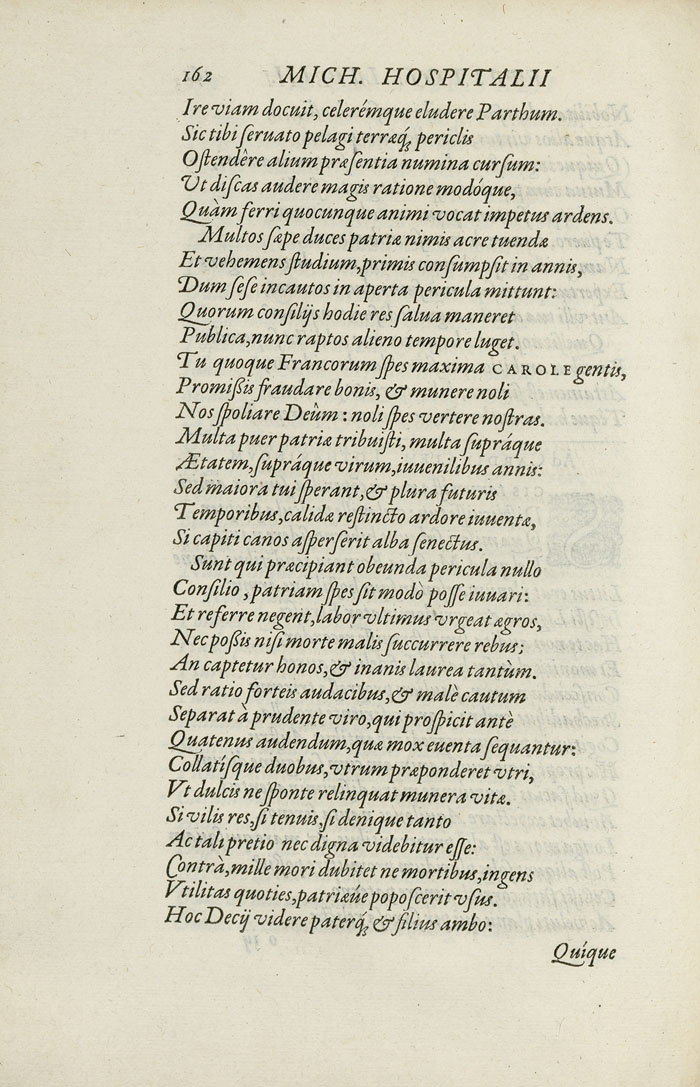 162 MICH. HOSPITALII
Ire viam docuit, celerémque eludere Parthum.
Sic tibi ſeruato pelagi terræq́; periclis
Oſtendêre alium præſentia numina curſum:
Vt diſcas audere magis ratione modóque,
Quàm ferri quocunque animi vocat impetus ardens.
Multos ſæpe duces patriæ nimis acre tuendæ
Et vehemens ſtudium, primis conſumpſit in annis,
Dum ſeſe incautos in aperta pericula mittunt:
Quorum conſilijs hodie res ſalua maneret
Publica, nunc raptos alieno tempore luget.
Tu quoque Francorum ſpes maxima CAROLE gentis,
Promißis fraudare bonis, & munere noli
Nos ſpoliare Deûm: noli ſpes vertere noſtras.
Multa puer patriæ tribuiſti, multa ſupráque
Ætatem, ſupráque virum, iuuenilibus annis:
Sed maiora tui ſperant, & plura futuris
Temporibus, calidæ reſtincto ardore iuuentæ,
Si capiti canos aſperſerit alba ſenectus.
Sunt qui præcipiant obeunda pericula nullo
Conſilio, patriam ſpes ſit modò poſſe iuuari:
Et referre negent, labor vltimus vrgeat ægros,
Nec poßis niſi morte malis ſuccurrere rebus;
An captetur honos, & inanis laurea tantùm.
Sed ratio forteis audacibus, & malè cautum
Separat à prudente viro, qui proſpicit antè
Quatenus audendum, quæ mox euenta ſequantur:
Collatíſque duobus, vtrum præponderet vtri,
Vt dulcis ne ſponte relinquat munera vitæ.
Si vilis res, ſi tenuis, ſi denique tanto
Ac tali pretio nec digna videbitur eſſe:
Contrà, mille mori dubitet ne mortibus, ingens
Vtilitas quoties, patriæúe popoſcerit vſus.
Hoc Decij videre paterq́; & filius ambo:
Quíque